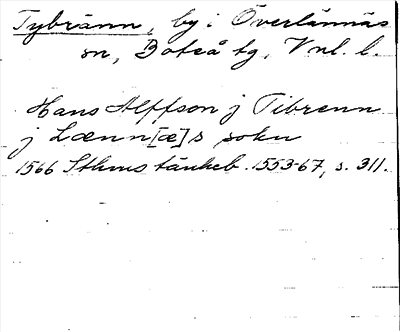 Tybränn, by i Överlännäs
sn, Boteå tg, Vnl. l.
Hans Alffson j Tibrenn
j Lænn[æ]s sokn
1566 Sthms tänkeb. 1553-67, s. 311.